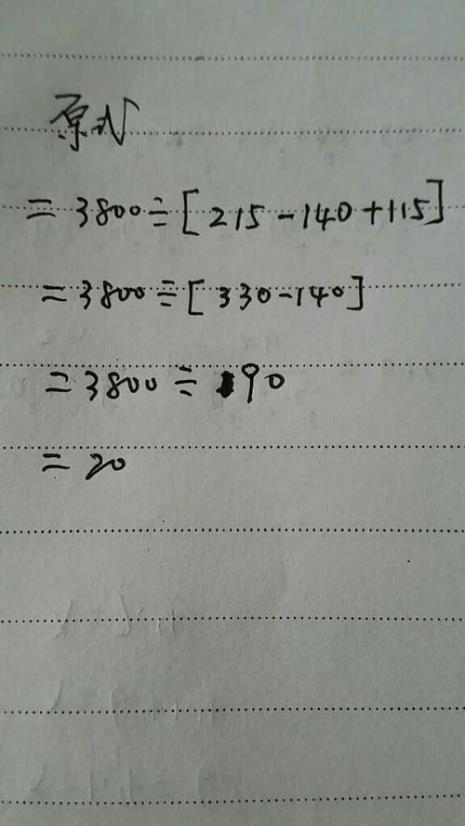 原式
= 3800 ÷ [215 - 140 + 115]
= 3800 ÷ [330 - 140]
= 3800 ÷ 190
= 20